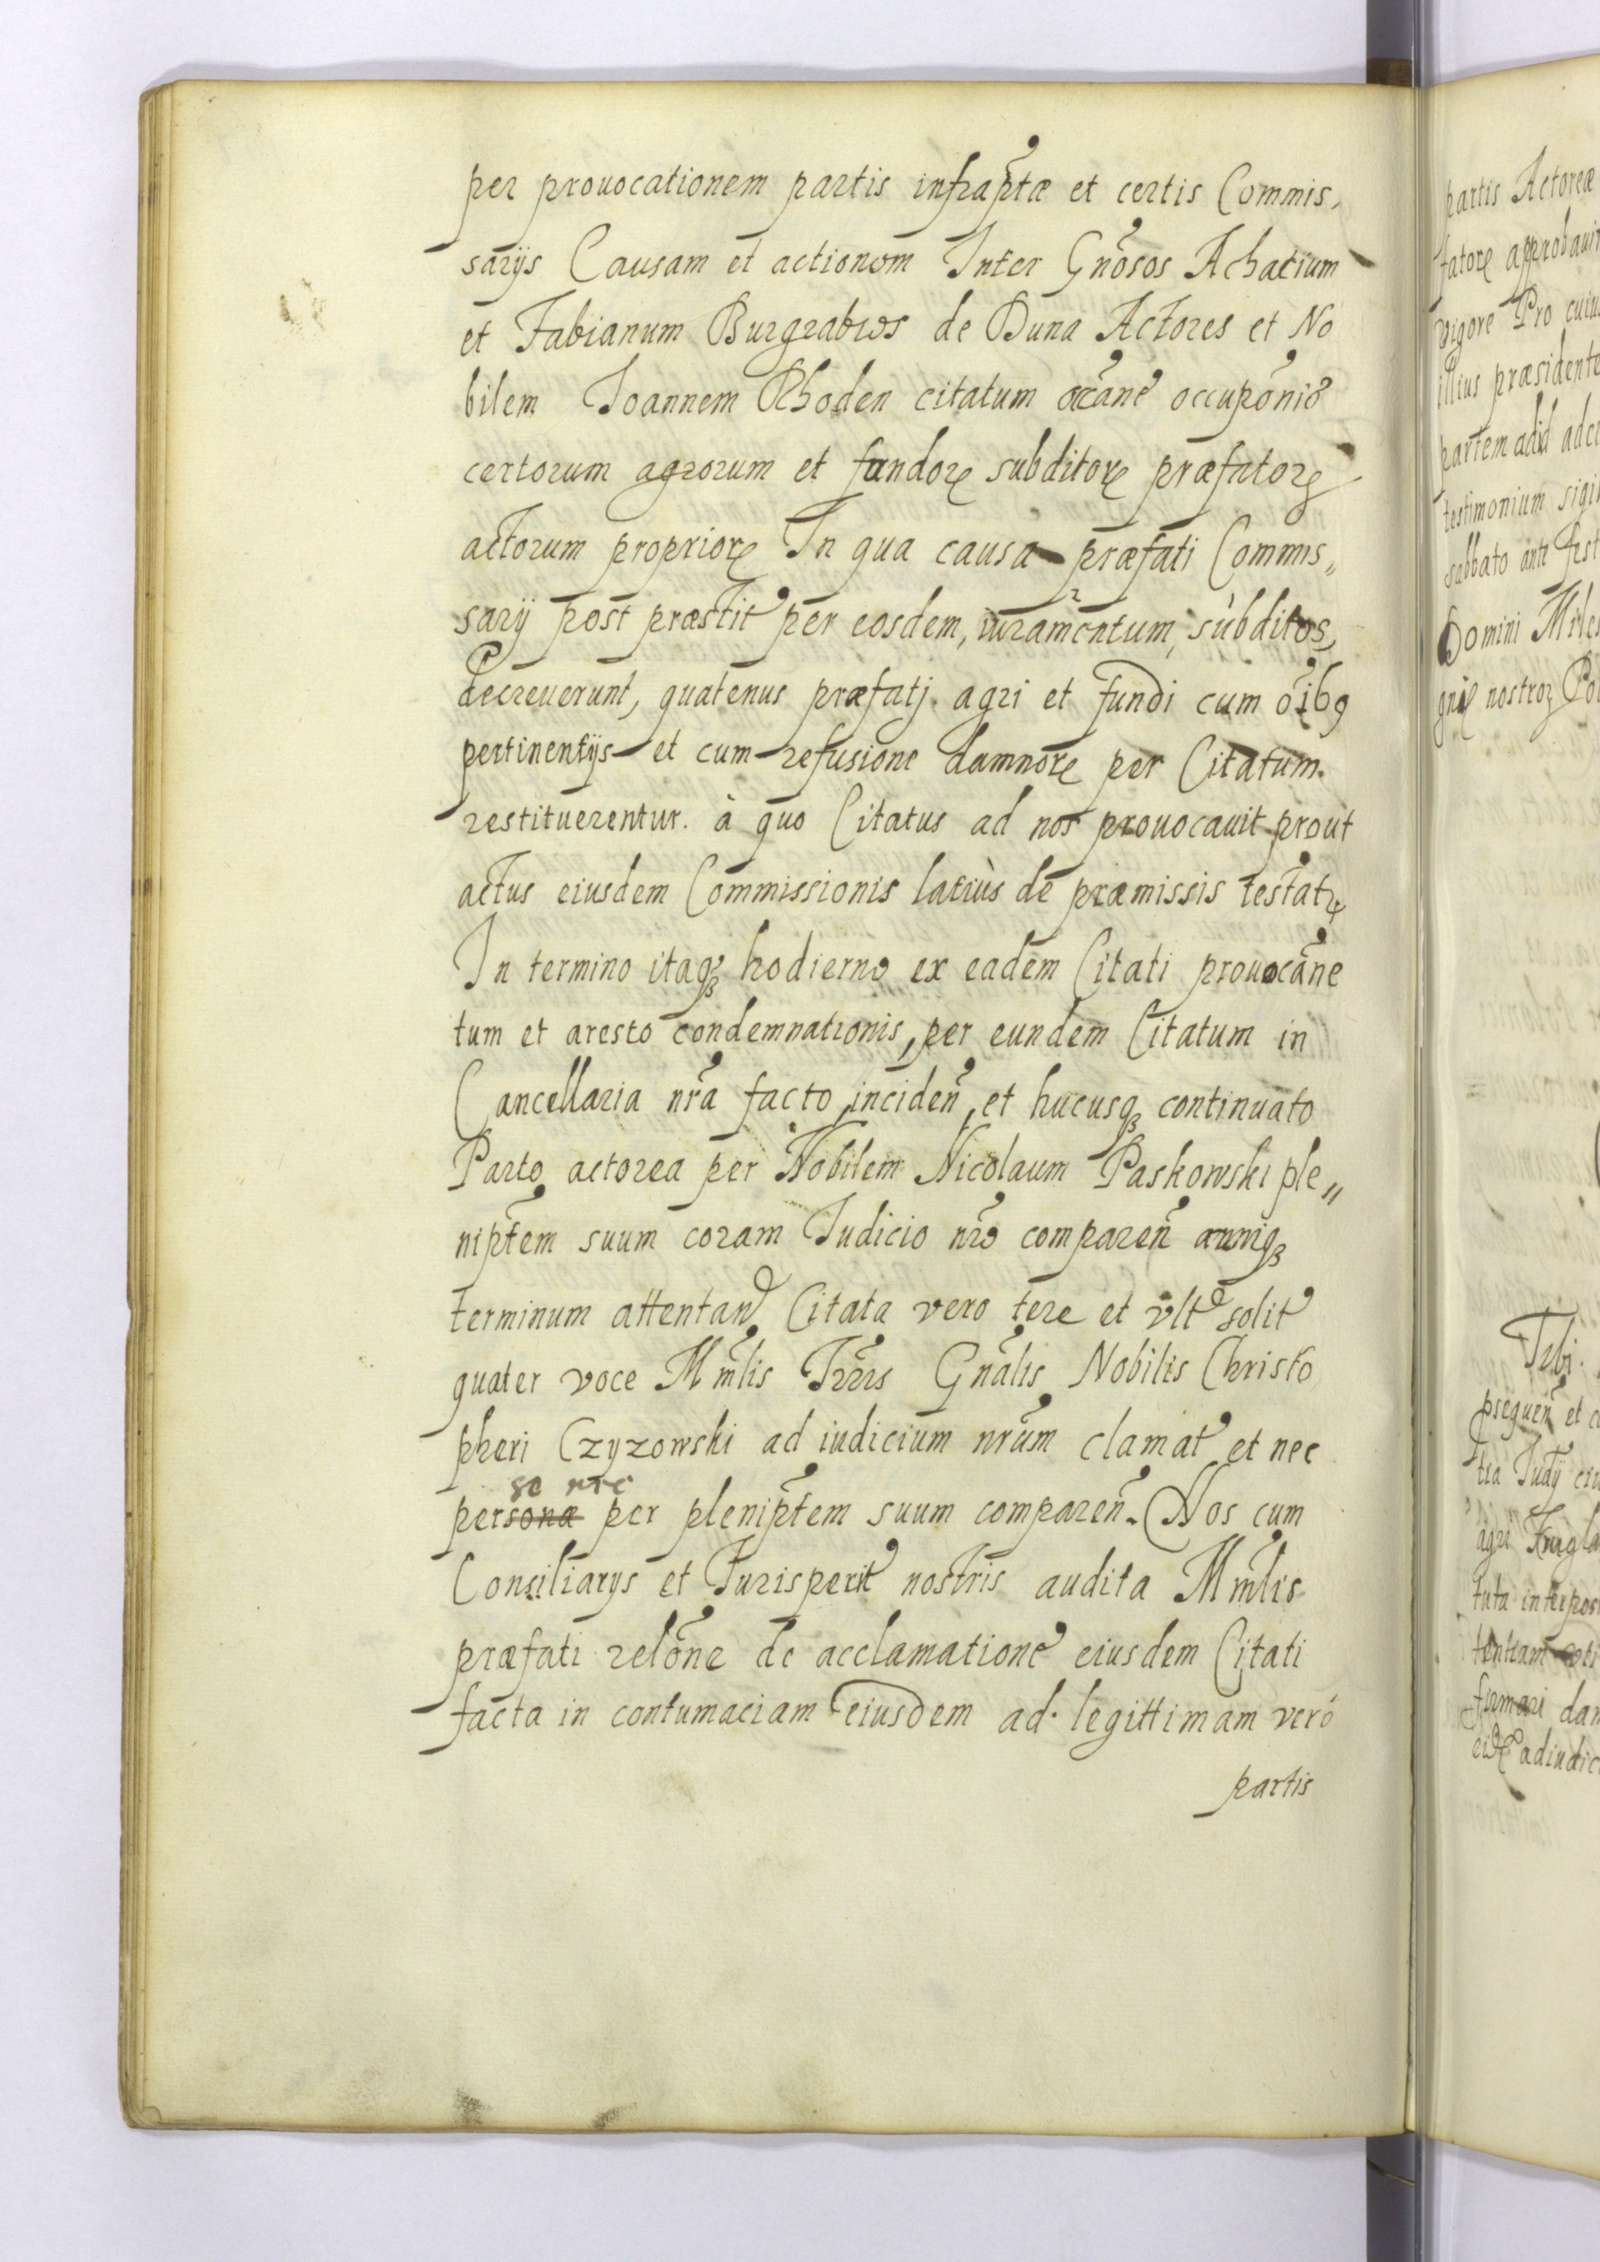 per prouocationem partis infrap̃tæ et certis Commis,
sarijs Causam et actionem Inter Gn̄osos Achatium
et Fabianum Burgrabios de Duna Actores et No
bilem Joannem Rhoden citatum occ̃ane occupōnis
certorum agrorum et fundorꝝ subditorꝝ præfatorꝝ
actorum propriorꝝ In qua causa præfati Commis„
sarij post præstit per eosdem, iuramentum, subditos,
decreuerunt, quatenus præfatj agri et fundi cum oı̄bꝯ
pertinentijs et cum refusione damnorꝝ per Citatum.
restituerentur. à quo Citatus ad nos prouocauit prout
actus eiusdem Commissionis latiùs de præmissis testatꝛ
In termino itaqꝫ hodierno ex eadem Citati prouocāne
tum et aresto condemnationis, per eundem Citatum in
Cancellaria nr̄a facto, inciden̄, et hucusqꝫ continuato
Parte actorea per Nobilem Nicolaum Paskowski ple„
nip̃tem suum coram Iudicio nr̄o comparen̄
terminum attentan Citata vero tere et vlt solit
quater voce Mm̃lis Gn̄alis Nobilis Christo
pheri Czyzowski ad iudicium nr̄um clamat et nec
se nec
personæ per plenip̃tem suum comparen̄. Nos cum
Consiliarys et Iurisperit nostris audita Mm̃lis
præfati relōne de acclamatione eiusdem Citati
facta in contumaciam eiusdem ad legittimam verò
partis
partis Actoreæ
tatorꝝ approbauit
vigore Pro cuius
illius præsidente
partem
testimonium sigil
sabbato ante Fest
Domini Mile
gni nostrorꝝ Po
pseguen̄ et
tra Iudÿ
agri
tuta interpos
tentiam
firmari dam
adiudic